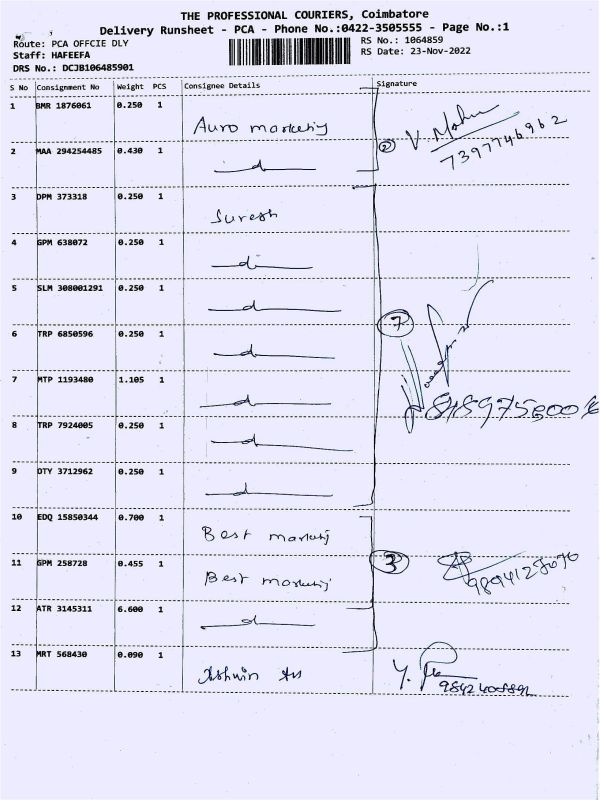 THE PROFESSIONAL COURIERS, Coimbatore
Delivery Runsheet - PCA - Phone No.:0422-3505555 - Page No.:1
Route: PCA OFFCIE DLY
RS No.: 1064859
Staff: HAFEEFA
RS Date: 23-Nov-2022
DRS No.: DCJB106485901
S No Consignment No Weight PCS Consignee Details Signature
1 BMR 1876061 0.250 1 Auro marketing
2 MAA 294254485 0.430 1 d
2 V. Mohan
7397746962
3 DPM 373318 0.250 1 Suresh
4 GPM 638072 0.250 1 d
5 SLM 308001291 0.250 1 d
7
6 TRP 6850596 0.250 1 d
7 MTP 1193480 1.105 1 d
8 TRP 7924005 0.250 1 d
9 OTY 3712962 0.250 1 d
10 EDQ 15850344 0.700 1 Best marketing
11 GPM 258728 0.455 1 Best marketing
3
12 ATR 3145311 6.600 1 d
13 MRT 568430 0.090 1 Ashwin